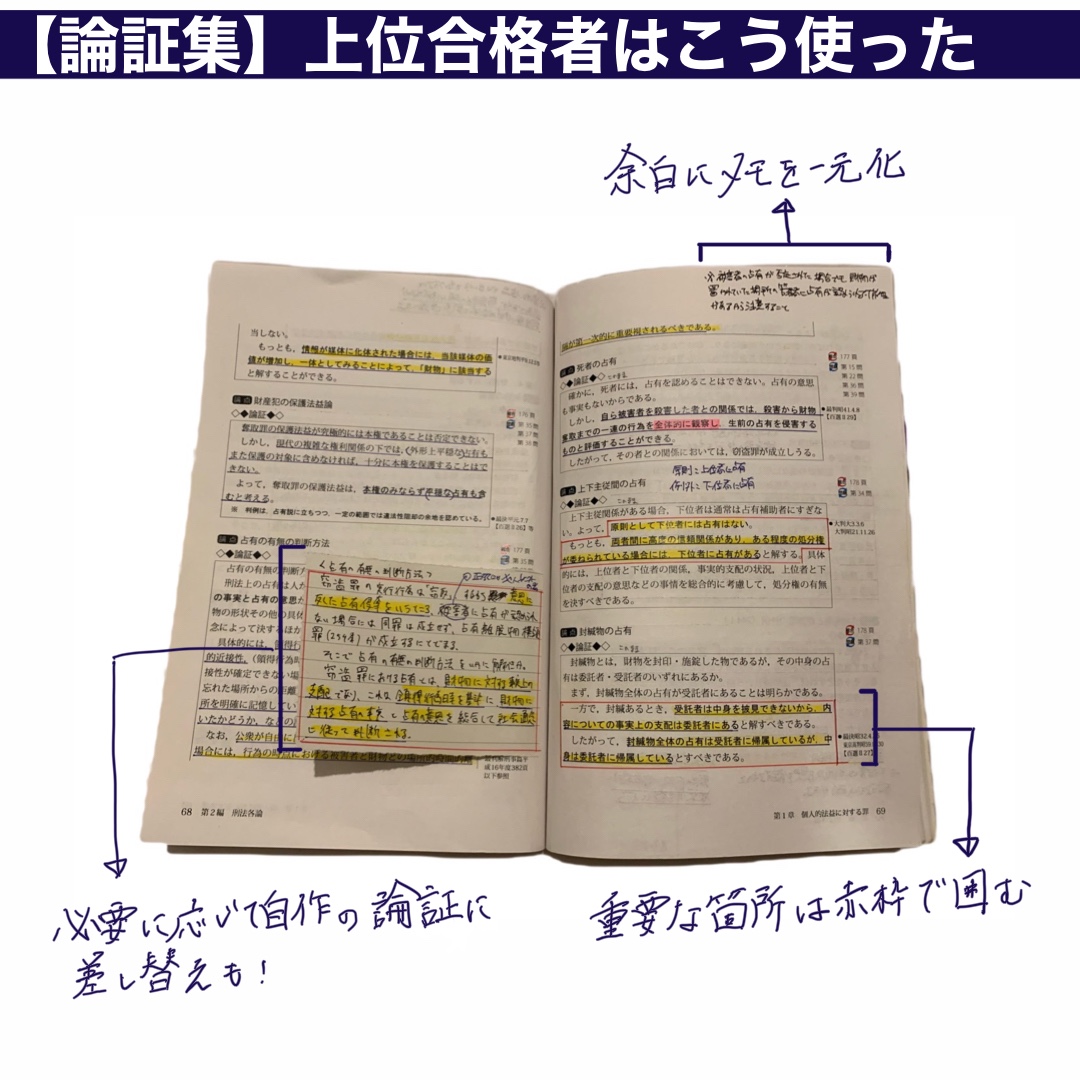 【論証集】上位合格者はこう使った
余白にメモを一元化
当しない。
もっとも、情報が媒体に化体された場合には、当該媒体の価
値が増加し、一体としてみることによって、「財物」に該当する
と解することができる。
論点 財産犯の保護法益論
176頁
◇◆論証◆◇
第35問
第37問
第38問
奪取罪の保護法益が究極的には本権であることは否定できない。
しかし、現代の複雑な権利関係の下では、(外形上平穏な)占有も
また保護の対象に含めなければ、十分に本権を保護することはで
きない。
よって、奪取罪の保護法益は、本権のみならず平穏な占有も含
むと考える。
※ 判例は、占有説に立ちつつ、一定の範囲では違法性阻却の余地を認めている。
●最決平元.7.7
【百選Ⅱ26】等
論点 占有の有無の判断方法
177頁
◇◆論証◆◇
第35問
占有の有無の判断方
刑法上の占有は人が
の事実と占有の意思か
物の形状その他の具体
念によって決するほか
具体的には、領得行
的近接性、(領得行為時
接性が確定できない場
忘れた場所からの距離
所を明確に記憶してい
いたかどうか、などの
なお、公衆が自由に
場合には、行為の時点における被害者と財物との場所的
平成16年度382頁
以下参照
<占有の有無の判断方法>
窃盗罪の実行行為は「窃取」
反した占有移転をいうところ、被害者に占有が認められ
ない場合には同罪は成立せず、占有離脱物横領
罪(254条)が成立するにとどまる。
そこで占有の有無の判断方法をいかに解せるか。
窃盗罪における占有とは、財物に対する事実上の
支配であり、これは
対する占有の事実と占有の意思を総合して社会通念
に従って判断される。
68 第2編 刑法各論
論が第一次的に重要視されるべきである。
論点 死者の占有
177頁
◇◆論証◆◇
第15問
第22問
第36問
第39問
確かに、死者には、占有を認めることはできない。占有の意思
も事実もないからである。
しかし、自ら被害者を殺害した者との関係では、殺害から財物
奪取までの一連の行為を全体的に観察し、生前の占有を侵害する
ものと評価することができる。
したがって、その者との関係においては、窃盗罪が成立しうる。
●最判昭41.4.8
【百選Ⅱ29】
原則:上位者に占有
例外:下位者に占有
論点 上下主従間の占有
178頁
◇◆論証◆◇
第34問
上下主従関係がある場合、下位者は通常は占有補助者にすぎな
い。よって、原則として下位者には占有はない。
もっとも、両者間に高度の信頼関係があり、ある程度の処分権
が委ねられている場合には、下位者に占有があると解する。具体
的には、上位者と下位者の関係、事実的支配の状況、上位者と下
位者の支配の意思などの事情を総合的に考慮して、処分権の有無
を決すべきである。
●大判大3.3.6
大判昭21.11.26
論点 封緘物の占有
178頁
◇◆論証◆◇
第32問
封緘物とは、財物を封印・施錠した物であるが、その中身の占
有は委託者・受託者のいずれにあるか。
まず、封緘物全体の占有が受託者にあることは明らかである。
一方で、封緘あるとき、受託者は中身を披見できないから、内
容についての事実上の支配は委託者にあると解すべきである。
したがって、封緘物全体の占有は受託者に帰属しているが、中
身は委託者に帰属しているとすべきである。
【百選Ⅱ27】
第1章 個人的法益に対する罪 69
必要に応じて自作の論証に
差し替えも!
重要な箇所は赤枠で囲む